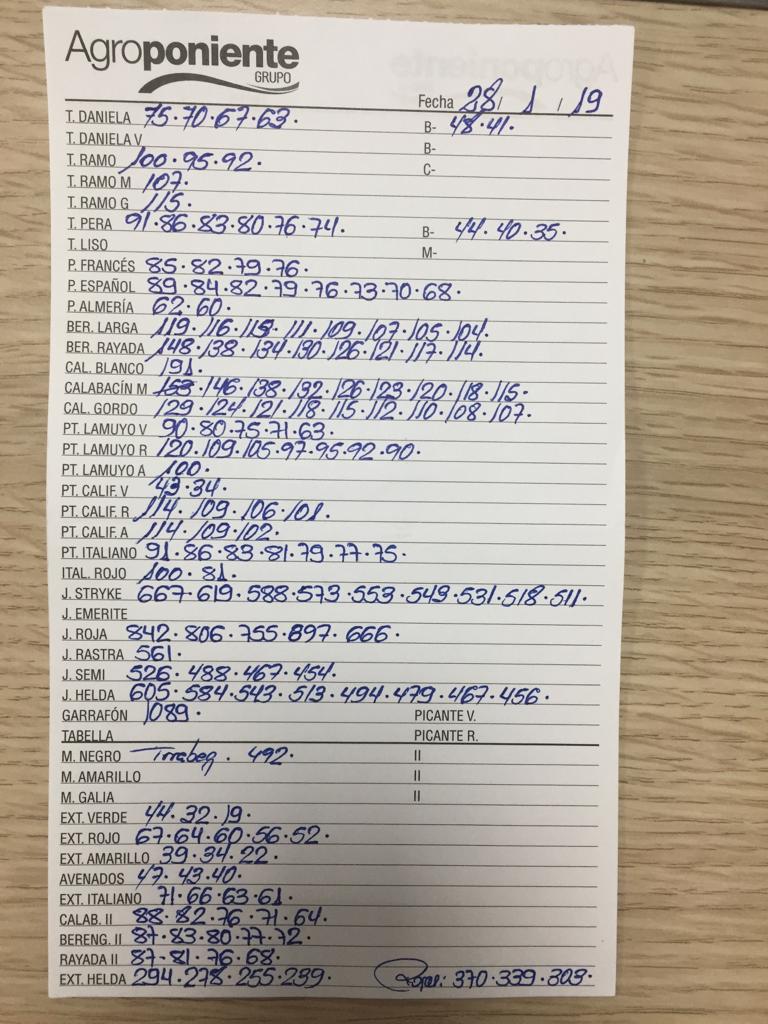 Agroponiente
GRUPO
Fecha 28 / 1 / 19
T. DANIELA 75·70·67·63· B- 48·41·
T. DANIELA V B-
T. RAMO 100·95·92· C-
T. RAMO M 107·
T. RAMO G 115·
T. PERA 91·86·83·80·76·74· B- 44·40·35·
T. LISO M-
P. FRANCÉS 85·82·79·76·
P. ESPAÑOL 89·84·82·79·76·73·70·68·
P. ALMERÍA 62·60·
BER. LARGA 119·116·115·111·109·107·105·104·
BER. RAYADA 148·138·134·130·126·121·117·114·
CAL. BLANCO 191·
CALABACÍN M 153·146·138·132·126·123·120·118·115·
CAL. GORDO 129·124·121·118·115·112·110·108·107·
PT. LAMUYO V 90·80·75·71·63·
PT. LAMUYO R 120·109·105·97·95·92·90·
PT. LAMUYO A 100·
PT. CALIF. V 43·34·
PT. CALIF. R 114·109·106·101·
PT. CALIF. A 114·109·102·
PT. ITALIANO 91·86·83·81·79·77·75·
ITAL. ROJO 100·81·
J. STRYKE 667·619·588·573·553·549·531·518·511·
J. EMERITE
J. ROJA 842·806·755·897·666·
J. RASTRA 561·
J. SEMI 526·488·467·454·
J. HELDA 605·584·543·513·494·479·467·456·
GARRAFÓN 1089· PICANTE V.
TABELLA PICANTE R.
M. NEGRO 492· II
M. AMARILLO II
M. GALIA II
EXT. VERDE 44·32·19·
EXT. ROJO 67·64·60·56·52·
EXT. AMARILLO 39·34·22·
AVENADOS 47·43·40·
EXT. ITALIANO 71·66·63·61·
CALAB. II 88·82·76·71·64·
BERENG. II 87·83·80·77·72·
RAYADA II 87·81·76·68·
EXT. HELDA 294·278·255·239· 370·339·303·